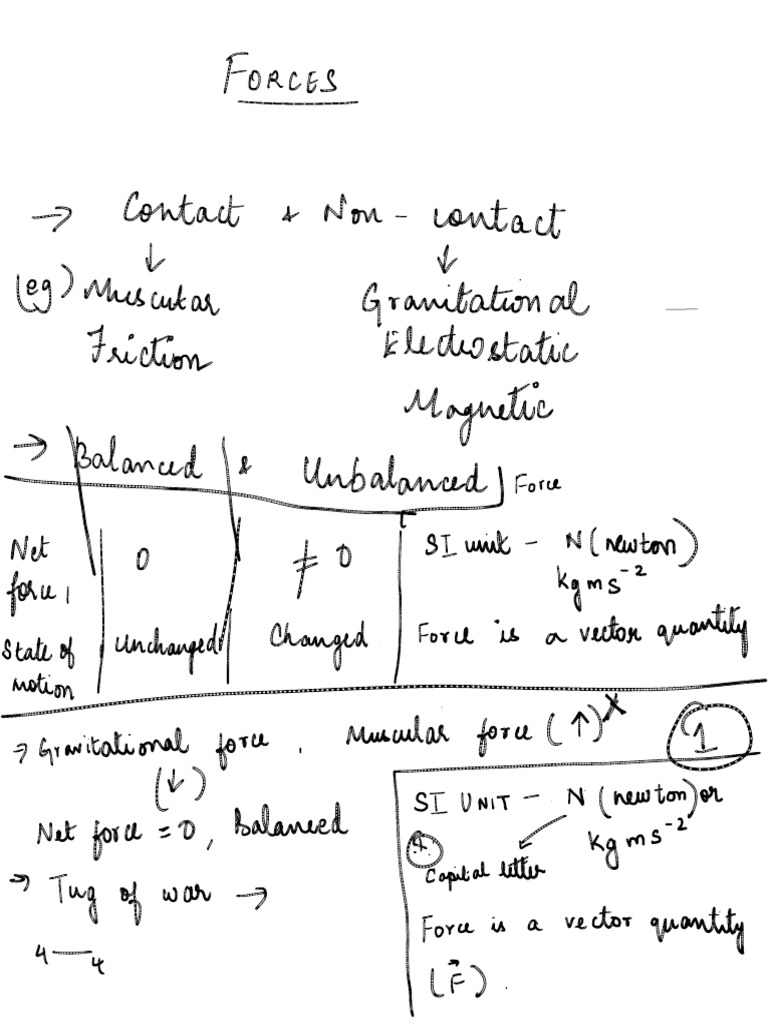 FORCES
→ Contact & Non-contact
↓ ↓
(eg) Muscular Gravitational
Friction Electrostatic
Magnetic
→ Balanced & Unbalanced Force
Net force, 0 ≠ 0
State of motion Unchanged Changed
SI unit - N (newton)
kg ms⁻²
Force is a vector quantity
→ Gravitational force, Muscular force (↑)
(↓)
1
Net force = 0, Balanced
→ Tug of war →
4—4
SI UNIT - N (newton) or
kg ms⁻²
Capital letter
Force is a vector quantity
(F⃗).